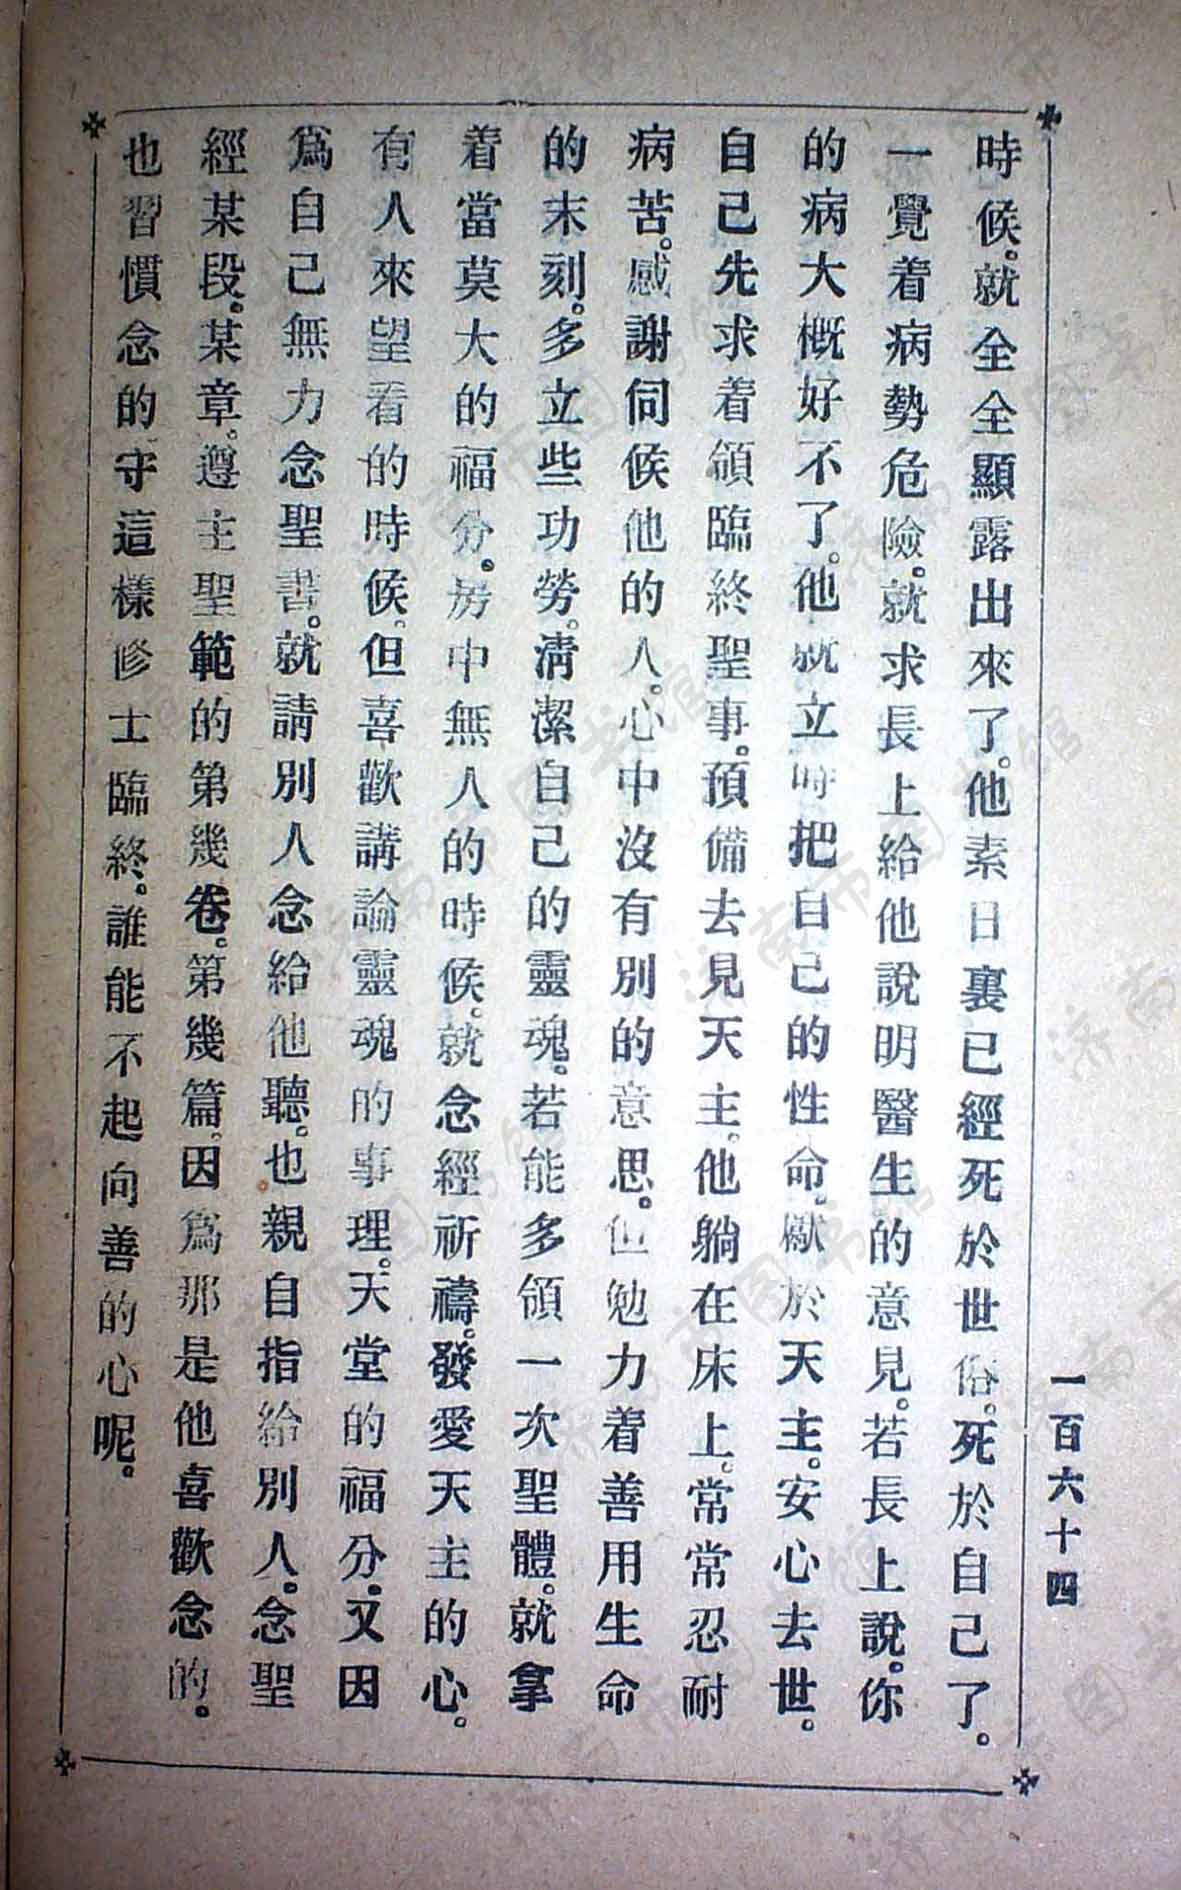 時候。就全全顯露出來了。他素日裏已經死於世俗。死於自己了。
一覺着病勢危險。就求長上給他說明醫生的意見。若長上說。你
的病大概好不了。他就立時把自己的性命。獻於天主。安心去世。
自己先求着領臨終聖事。預備去見天主。他躺在床上。常常忍耐
病苦。感謝伺候他的人。心中沒有別的意思。但勉力着善用生命
的末刻。多立些功勞。淸潔自己的靈魂。若能多領一次聖體。就拿
着當莫大的福分。房中無人的時候。就念經祈禱。發愛天主的心。
有人來望看的時候。但喜歡講論靈魂的事理。天堂的福分。又因
爲自己無力念聖書。就請別人念給他聽。也親自指給別人。念聖
經某段。某章。遵主聖範的第幾卷。第幾篇。因爲那是他喜歡念的。
也習慣念的。守這樣修士臨終。誰能不起向善的心呢。
一百六十四
济南市图书馆